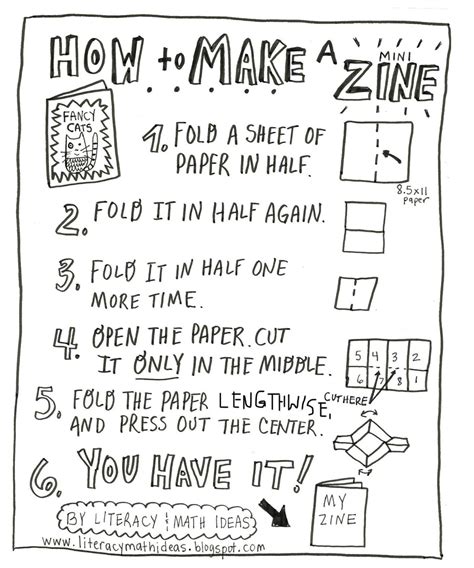 HOW to MAKE A
MINI
ZINE
FANCY
CATS
1. FOLD A SHEET OF
PAPER IN HALF.
8.5x11
paper
2. FOLD IT IN HALF AGAIN.
3. FOLD IT IN HALF ONE
MORE TIME.
4. OPEN THE PAPER. CUT
IT ONLY IN THE MIDDLE.
5 4 3 2
6 7 8 1
CUT HERE
5. FOLD THE PAPER LENGTHWISE,
AND PRESS OUT THE CENTER.
6. YOU HAVE IT!
MY
ZINE
BY LITERACY & MATH IDEAS
www.literacymathideas.blogspot.com